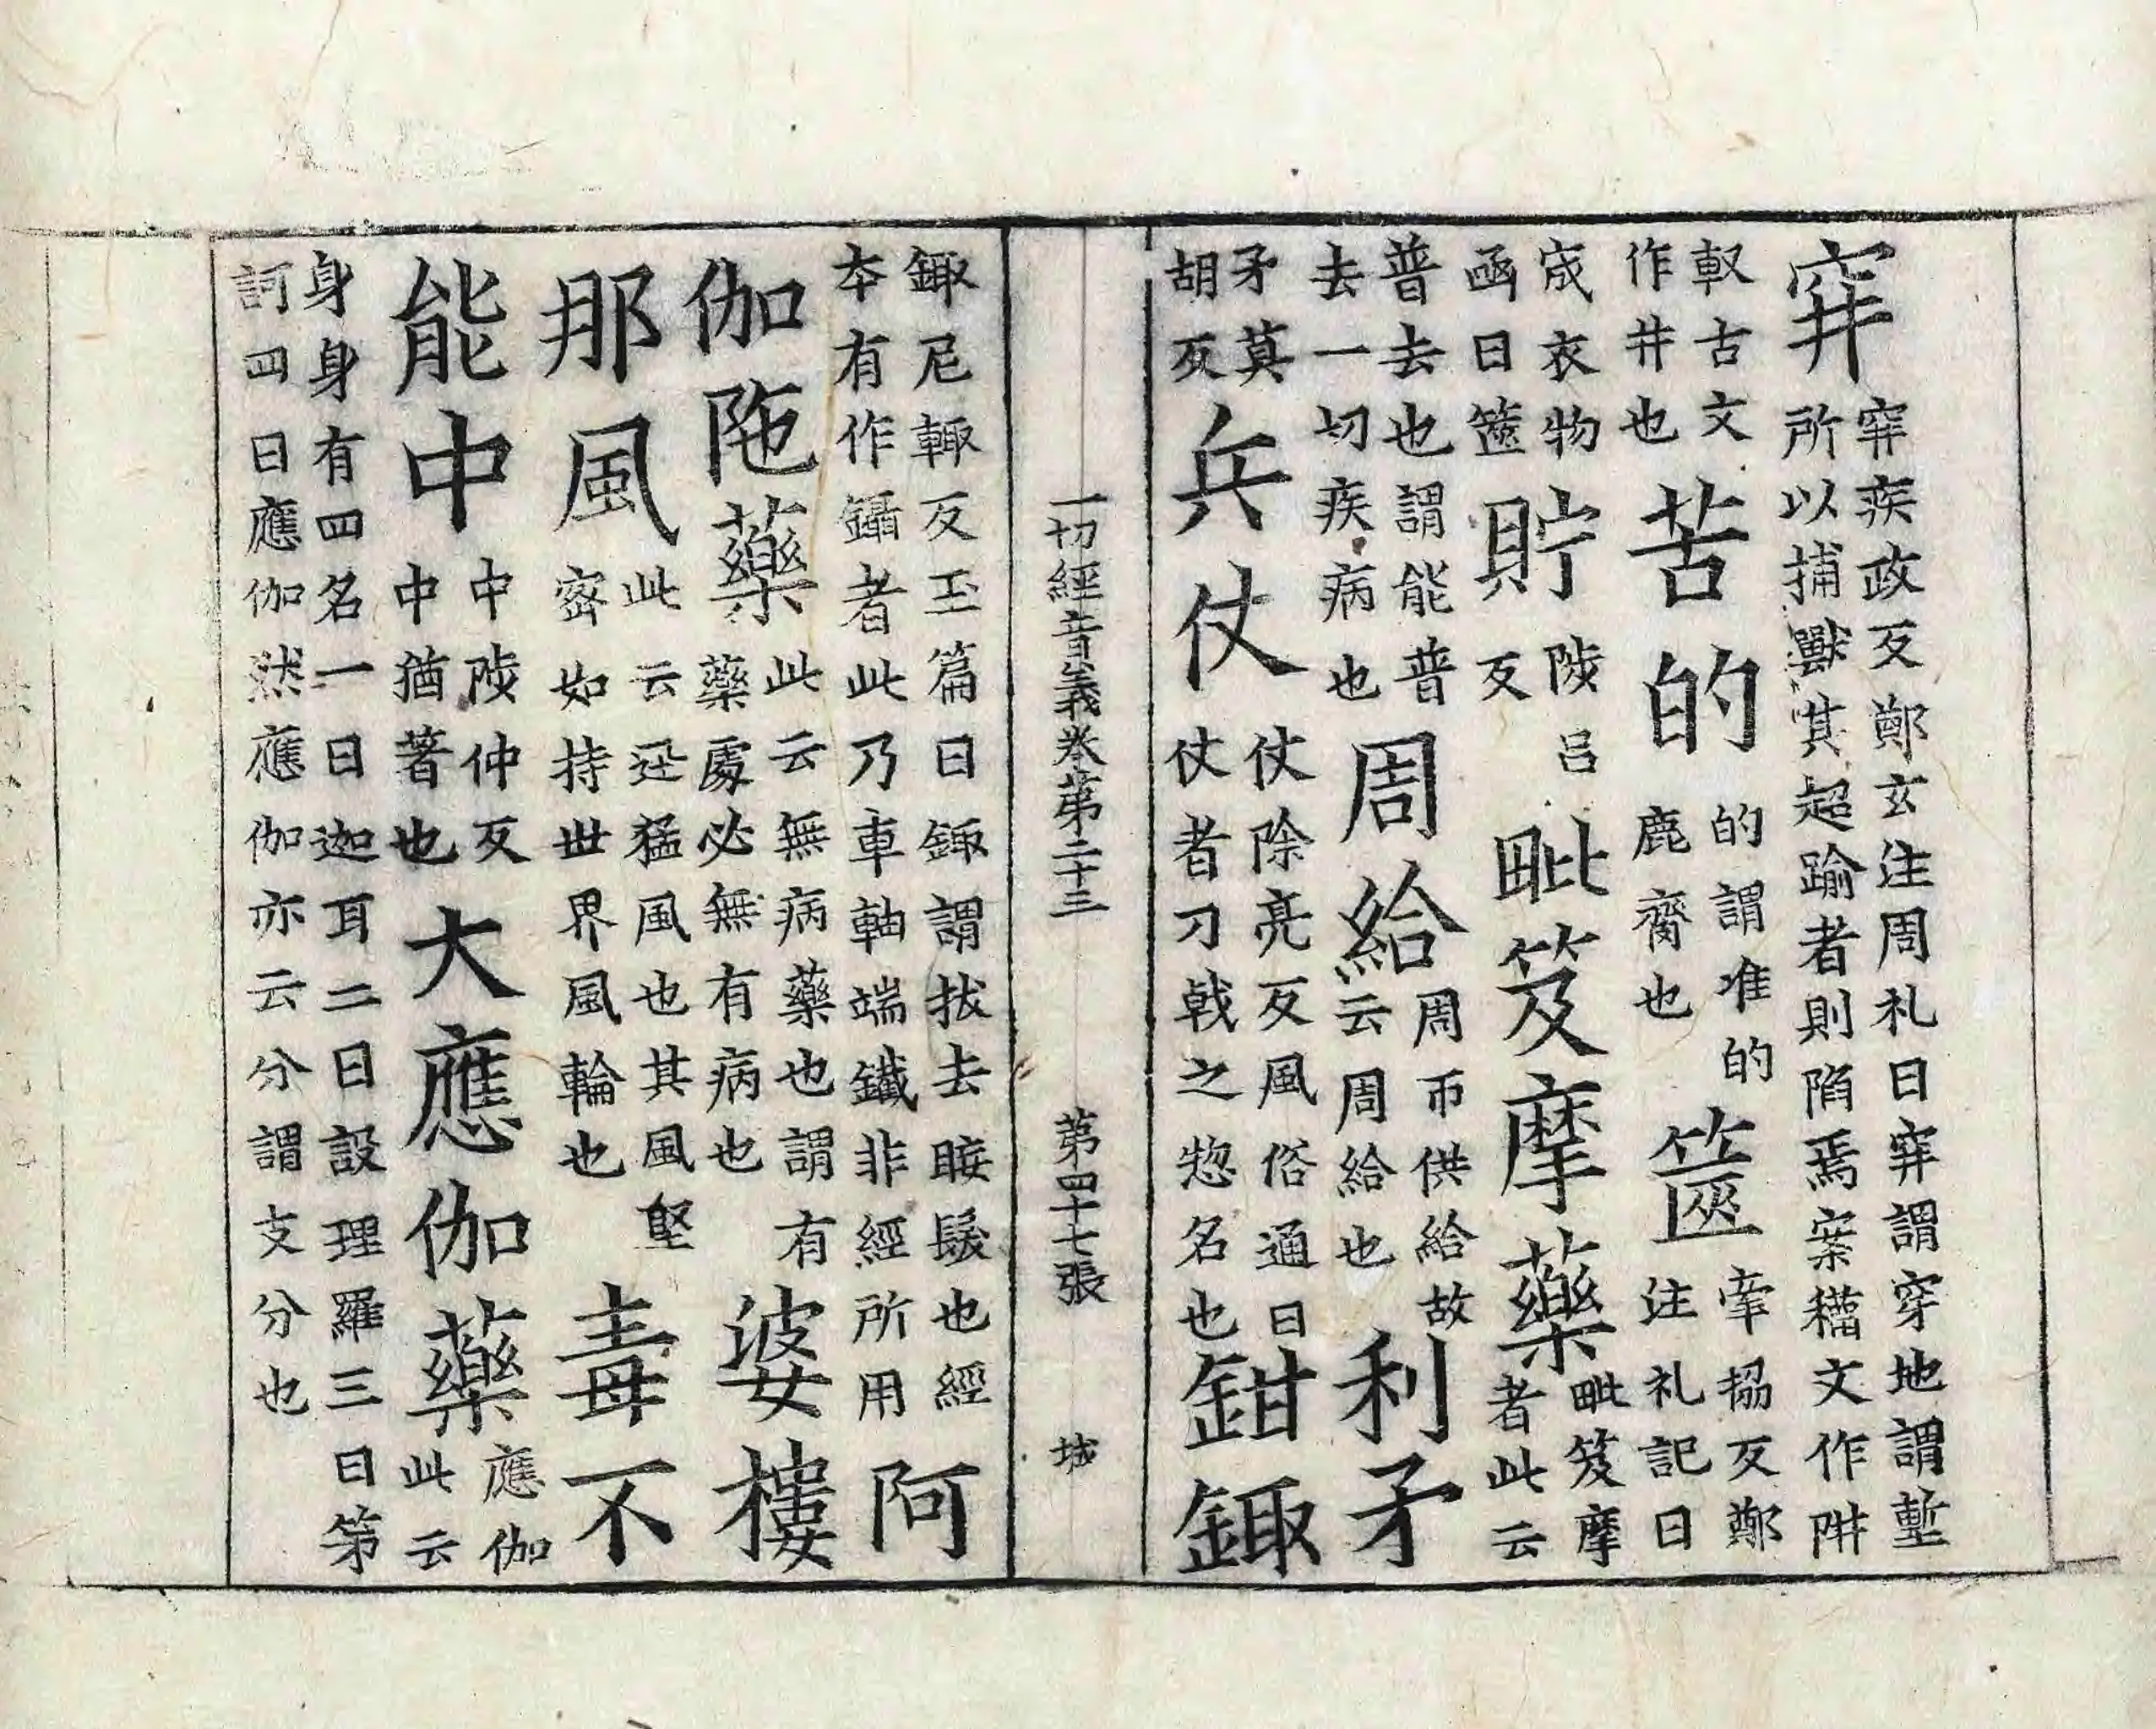 穽穽疾政反鄭玄注周礼曰穽謂穿地謂塹所以捕獸其超踰者則陷焉案籀文作阱
古文作井也苦的的謂准的鹿齊也篋牽協反鄭注礼記曰
宬衣物凾曰篋貯陟呂反毗笈摩藥毗笈摩者此云
普去也謂能普去一切疾病也周給周帀供給故云周給也利矛
矛莫胡反兵仗仗除亮反風俗通曰仗者刀戟之惣名也鉗鋷
一切經音義卷第二十三 第四十七張 城
鋷尼輙反玉篇曰鋷謂拔去睫髮也經本有作鑷者此乃車軸端鐵非經所用阿
伽陁藥此云無病藥也謂有藥處必無有病也婆樓
那風此云迅猛風也其風堅密如持世界風輪也毒不
能中中陟仲反中猶著也大應伽藥應伽此云
身身有四名一曰迦耳二曰設理羅三曰第訶四曰應伽然應伽亦云分謂支分也